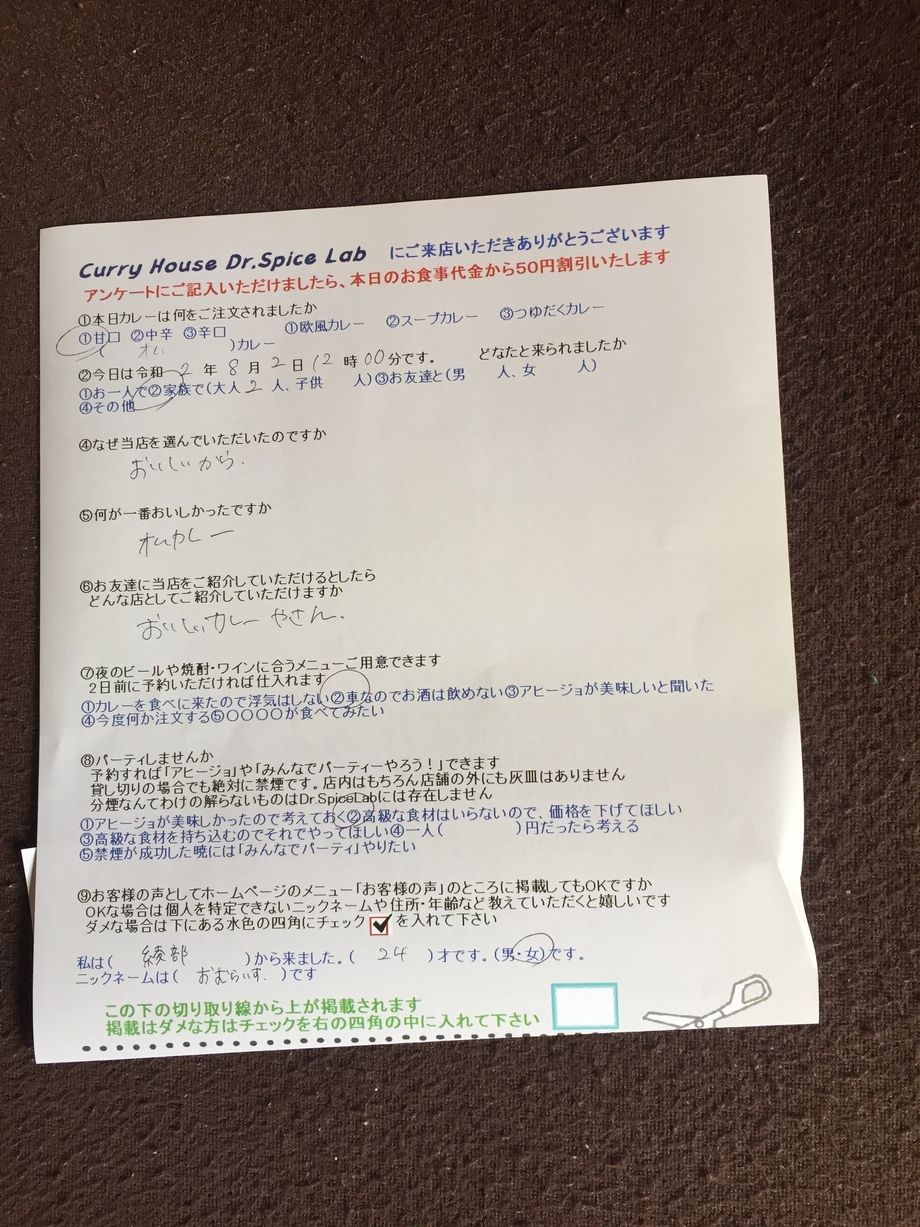 Curry House Dr.Spice Lab にご来店いただきありがとうございます
アンケートにご記入いただけましたら、本日のお食事代金から50円割引いたします
①本日カレーは何をご注文されましたか
①甘口 ②中辛 ③辛口 ①欧風カレー ②スープカレー ③つゆだくカレー
( オム )カレー
②今日は令和 2 年 8 月 2 日 12 時 00 分です。 どなたと来られましたか
①お一人で②家族で(大人 2 人、子供 人)③お友達と(男 人、女 人)
④その他
④なぜ当店を選んでいただいたのですか
おいしいから.
⑤何が一番おいしかったですか
オムカレー
⑥お友達に当店をご紹介していただけるとしたら
どんな店としてご紹介していただけますか
おいしいカレーやさん.
⑦夜のビールや焼酎・ワインに合うメニューご用意できます
2日前に予約いただければ仕入れます
①カレーを食べに来たので浮気はしない②車なのでお酒は飲めない③アヒージョが美味しいと聞いた
④今度何か注文する⑤○○○○が食べてみたい
⑧パーティしませんか
予約すれば「アヒージョ」や「みんなでパーティーやろう！」できます
貸し切りの場合でも絶対に禁煙です。店内はもちろん店舗の外にも灰皿はありません
分煙なんてわけの解らないものはDr.SpiceLabには存在しません
①アヒージョが美味しかったので考えておく②高級な食材はいらないので、価格を下げてほしい
③高級な食材を持ち込むのでそれでやってほしい④一人( )円だったら考える
⑤禁煙が成功した暁には「みんなでパーティ」やりたい
⑨お客様の声としてホームページのメニュー「お客様の声」のところに掲載してもOKですか
OKな場合は個人を特定できないニックネームや住所・年齢など教えていただくと嬉しいです
ダメな場合は下にある水色の四角にチェック を入れて下さい
私は( 綾部 )から来ました。( 24 )才です。(男・女)です。
ニックネームは( おむらいす. )です
この下の切り取り線から上が掲載されます
掲載はダメな方はチェックを右の四角の中に入れて下さい